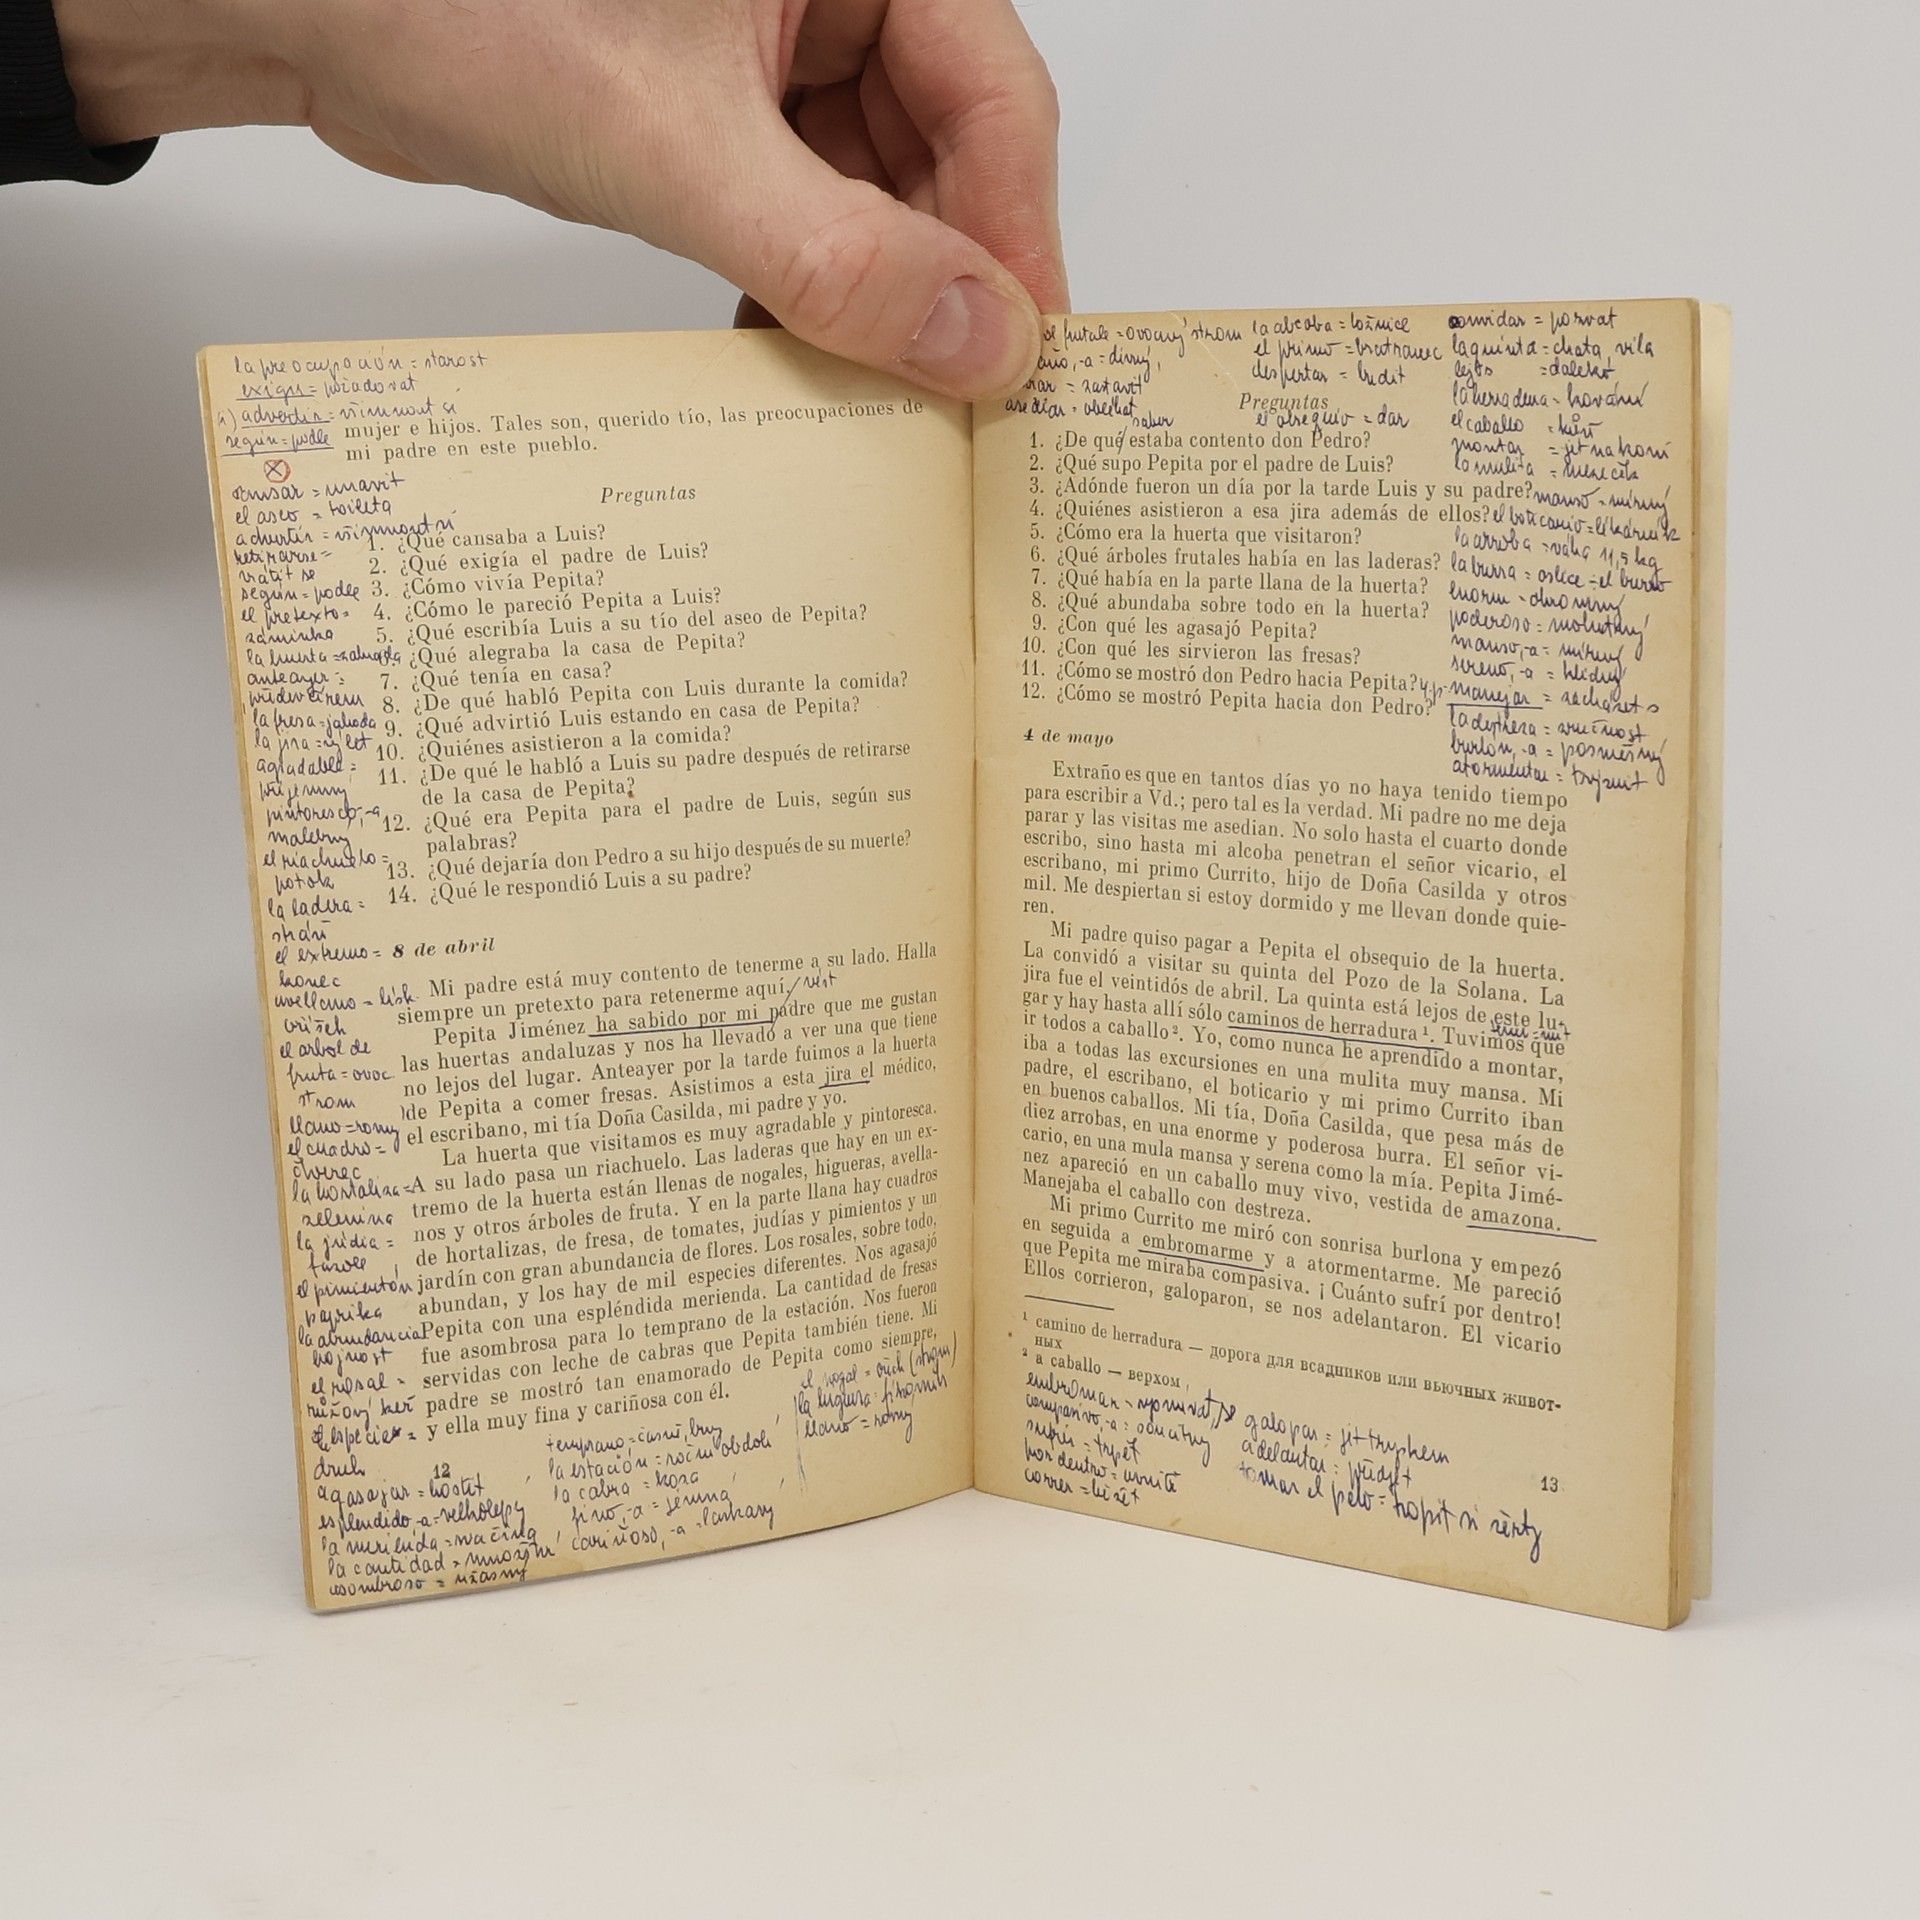 la preocupación = starost
exigir = požadovat
advertir = všimnout si
según = podle
mujer e hijos. Tales son, querido tío, las preocupaciones de
mi padre en este pueblo.
Preguntas
1. ¿Qué cansaba a Luis?
2. ¿Qué exigía el padre de Luis?
3. ¿Cómo vivía Pepita?
4. ¿Cómo le pareció Pepita a Luis?
5. ¿Qué escribía Luis a su tío del aseo de Pepita?
¿Qué alegraba la casa de Pepita?
7. ¿Qué tenía en casa?
8. ¿De qué habló Pepita con Luis durante la comida?
9. ¿Qué advirtió Luis estando en casa de Pepita?
10. ¿Quiénes asistieron a la comida?
11. ¿De qué le habló a Luis su padre después de retirarse
de la casa de Pepita?
12. ¿Qué era Pepita para el padre de Luis, según sus
palabras?
13. ¿Qué dejaría don Pedro a su hijo después de su muerte?
14. ¿Qué le respondió Luis a su padre?
8 de abril
Mi padre está muy contento de tenerme a su lado. Halla
siempre un pretexto para retenerme aquí.
Pepita Jiménez ha sabido por mi padre que me gustan
las huertas andaluzas y nos ha llevado a ver una que tiene
no lejos del lugar. Anteayer por la tarde fuimos a la huerta
de Pepita a comer fresas. Asistimos a esta jira el médico,
el escribano, mi tía Doña Casilda, mi padre y yo.
La huerta que visitamos es muy agradable y pintoresca.
A su lado pasa un riachuelo. Las laderas que hay en un ex-
tremo de la huerta están llenas de nogales, higueras, avella-
nos y otros árboles de fruta. Y en la parte llana hay cuadros
de hortalizas, de fresa, de tomates, judías y pimientos y un
jardín con gran abundancia de flores. Los rosales, sobre todo,
abundan, y los hay de mil especies diferentes. Nos agasajó
Pepita con una espléndida merienda. La cantidad de fresas
fue asombrosa para lo temprano de la estación. Nos fueron
servidas con leche de cabras que Pepita también tiene. Mi
padre se mostró tan enamorado de Pepita como siempre,
y ella muy fina y cariñosa con él.
12
el aseo = toileta
advertir = všimnout si
retirarse =
vrátit se
según = podle
el pretexto =
záminka
la huerta = zahrada
anteayer =
předevčírem
la fresa = jahoda
la jira = výlet
agradable =
příjemný
pintoresco, -a
malebný
el riachuelo =
potok
la ladera =
stráň
el extremo =
konec
avellano = lísk.
ořišek
el arbol de
fruta = ovoc.
strom
llano = rovný
el cuadro =
čtverec
la hortaliza =
zelenina
la judía =
fazole
el pimentón
paprika
la abundancia
hojnost
el rosal =
růžový keř
druh
agasajar = hostit
espléndido, -a = velkolepý
la merienda = svačina
la cantidad = množství
asombroso = úžasný
temprano = časně, brzy
la estación = roční období
la cabra = koza
fino, -a = jemná
cariñoso, -a = laskavý
el nogal = ořech (strom)
la higuera = fíkovník
llano = rovný
frutale = ovocný strom
asediar = obléhat
la alcoba = ložnice
el primo = bratranec
despertar = budit
el obsequio = dar
convidar = pozvat
la quinta = chata, vila
lejos = daleko
la herradura = kování
el caballo = kůň
montar = jet na koni
la mulita = mezek
manso = mírný
el boticario = lékárník
la arroba = váha 11,5 kg
la burra = oslice = el burro
enorm = ohromný
poderoso = mohutný
manso, -a = mírný
sereno, -a = klidný
manejar = zacházet s
la destreza = zručnost
burlón, -a = posměšný
atormentar = trýznit
Preguntas
saber
1. ¿De qué estaba contento don Pedro?
2. ¿Qué supo Pepita por el padre de Luis?
3. ¿Adónde fueron un día por la tarde Luis y su padre?
4. ¿Quiénes asistieron a esa jira además de ellos?
5. ¿Cómo era la huerta que visitaron?
6. ¿Qué árboles frutales había en las laderas?
7. ¿Qué había en la parte llana de la huerta?
8. ¿Qué abundaba sobre todo en la huerta?
9. ¿Con qué les agasajó Pepita?
10. ¿Con qué les sirvieron las fresas?
11. ¿Cómo se mostró don Pedro hacia Pepita?
12. ¿Cómo se mostró Pepita hacia don Pedro?
4 de mayo
Extraño es que en tantos días yo no haya tenido tiempo
para escribir a Vd.; pero tal es la verdad. Mi padre no me deja
parar y las visitas me asedian. No solo hasta el cuarto donde
escribo, sino hasta mi alcoba penetran el señor vicario, el
escribano, mi primo Currito, hijo de Doña Casilda y otros
mil. Me despiertan si estoy dormido y me llevan donde quie-
ren.
Mi padre quiso pagar a Pepita el obsequio de la huerta.
La convidó a visitar su quinta del Pozo de la Solana. La
jira fue el veintidós de abril. La quinta está lejos de este lu-
gar y hay hasta allí sólo caminos de herradura ¹. Tuvimos que
ir todos a caballo ². Yo, como nunca he aprendido a montar,
iba a todas las excursiones en una mulita muy mansa. Mi
padre, el escribano, el boticario y mi primo Currito iban
en buenos caballos. Mi tía, Doña Casilda, que pesa más de
diez arrobas, en una enorme y poderosa burra. El señor vi-
cario, en una mula mansa y serena como la mía. Pepita Jimé-
nez apareció en un caballo muy vivo, vestida de amazona.
Manejaba el caballo con destreza.
Mi primo Currito me miró con sonrisa burlona y empezó
en seguida a embromarme y a atormentarme. Me pareció
que Pepita me miraba compasiva. ¡Cuánto sufrí por dentro!
Ellos corrieron, galoparon, se nos adelantaron. El vicario
¹ camino de herradura — дорога для всадников или вьючных живот-
ных
² a caballo — верхом
compasivo, -a = soucitný
sufrir = trpět
por dentro = uvnitř
correr = běžet
galopar = jet tryskem
adelantar = předjet
tomar el pelo = tropit si žerty
13